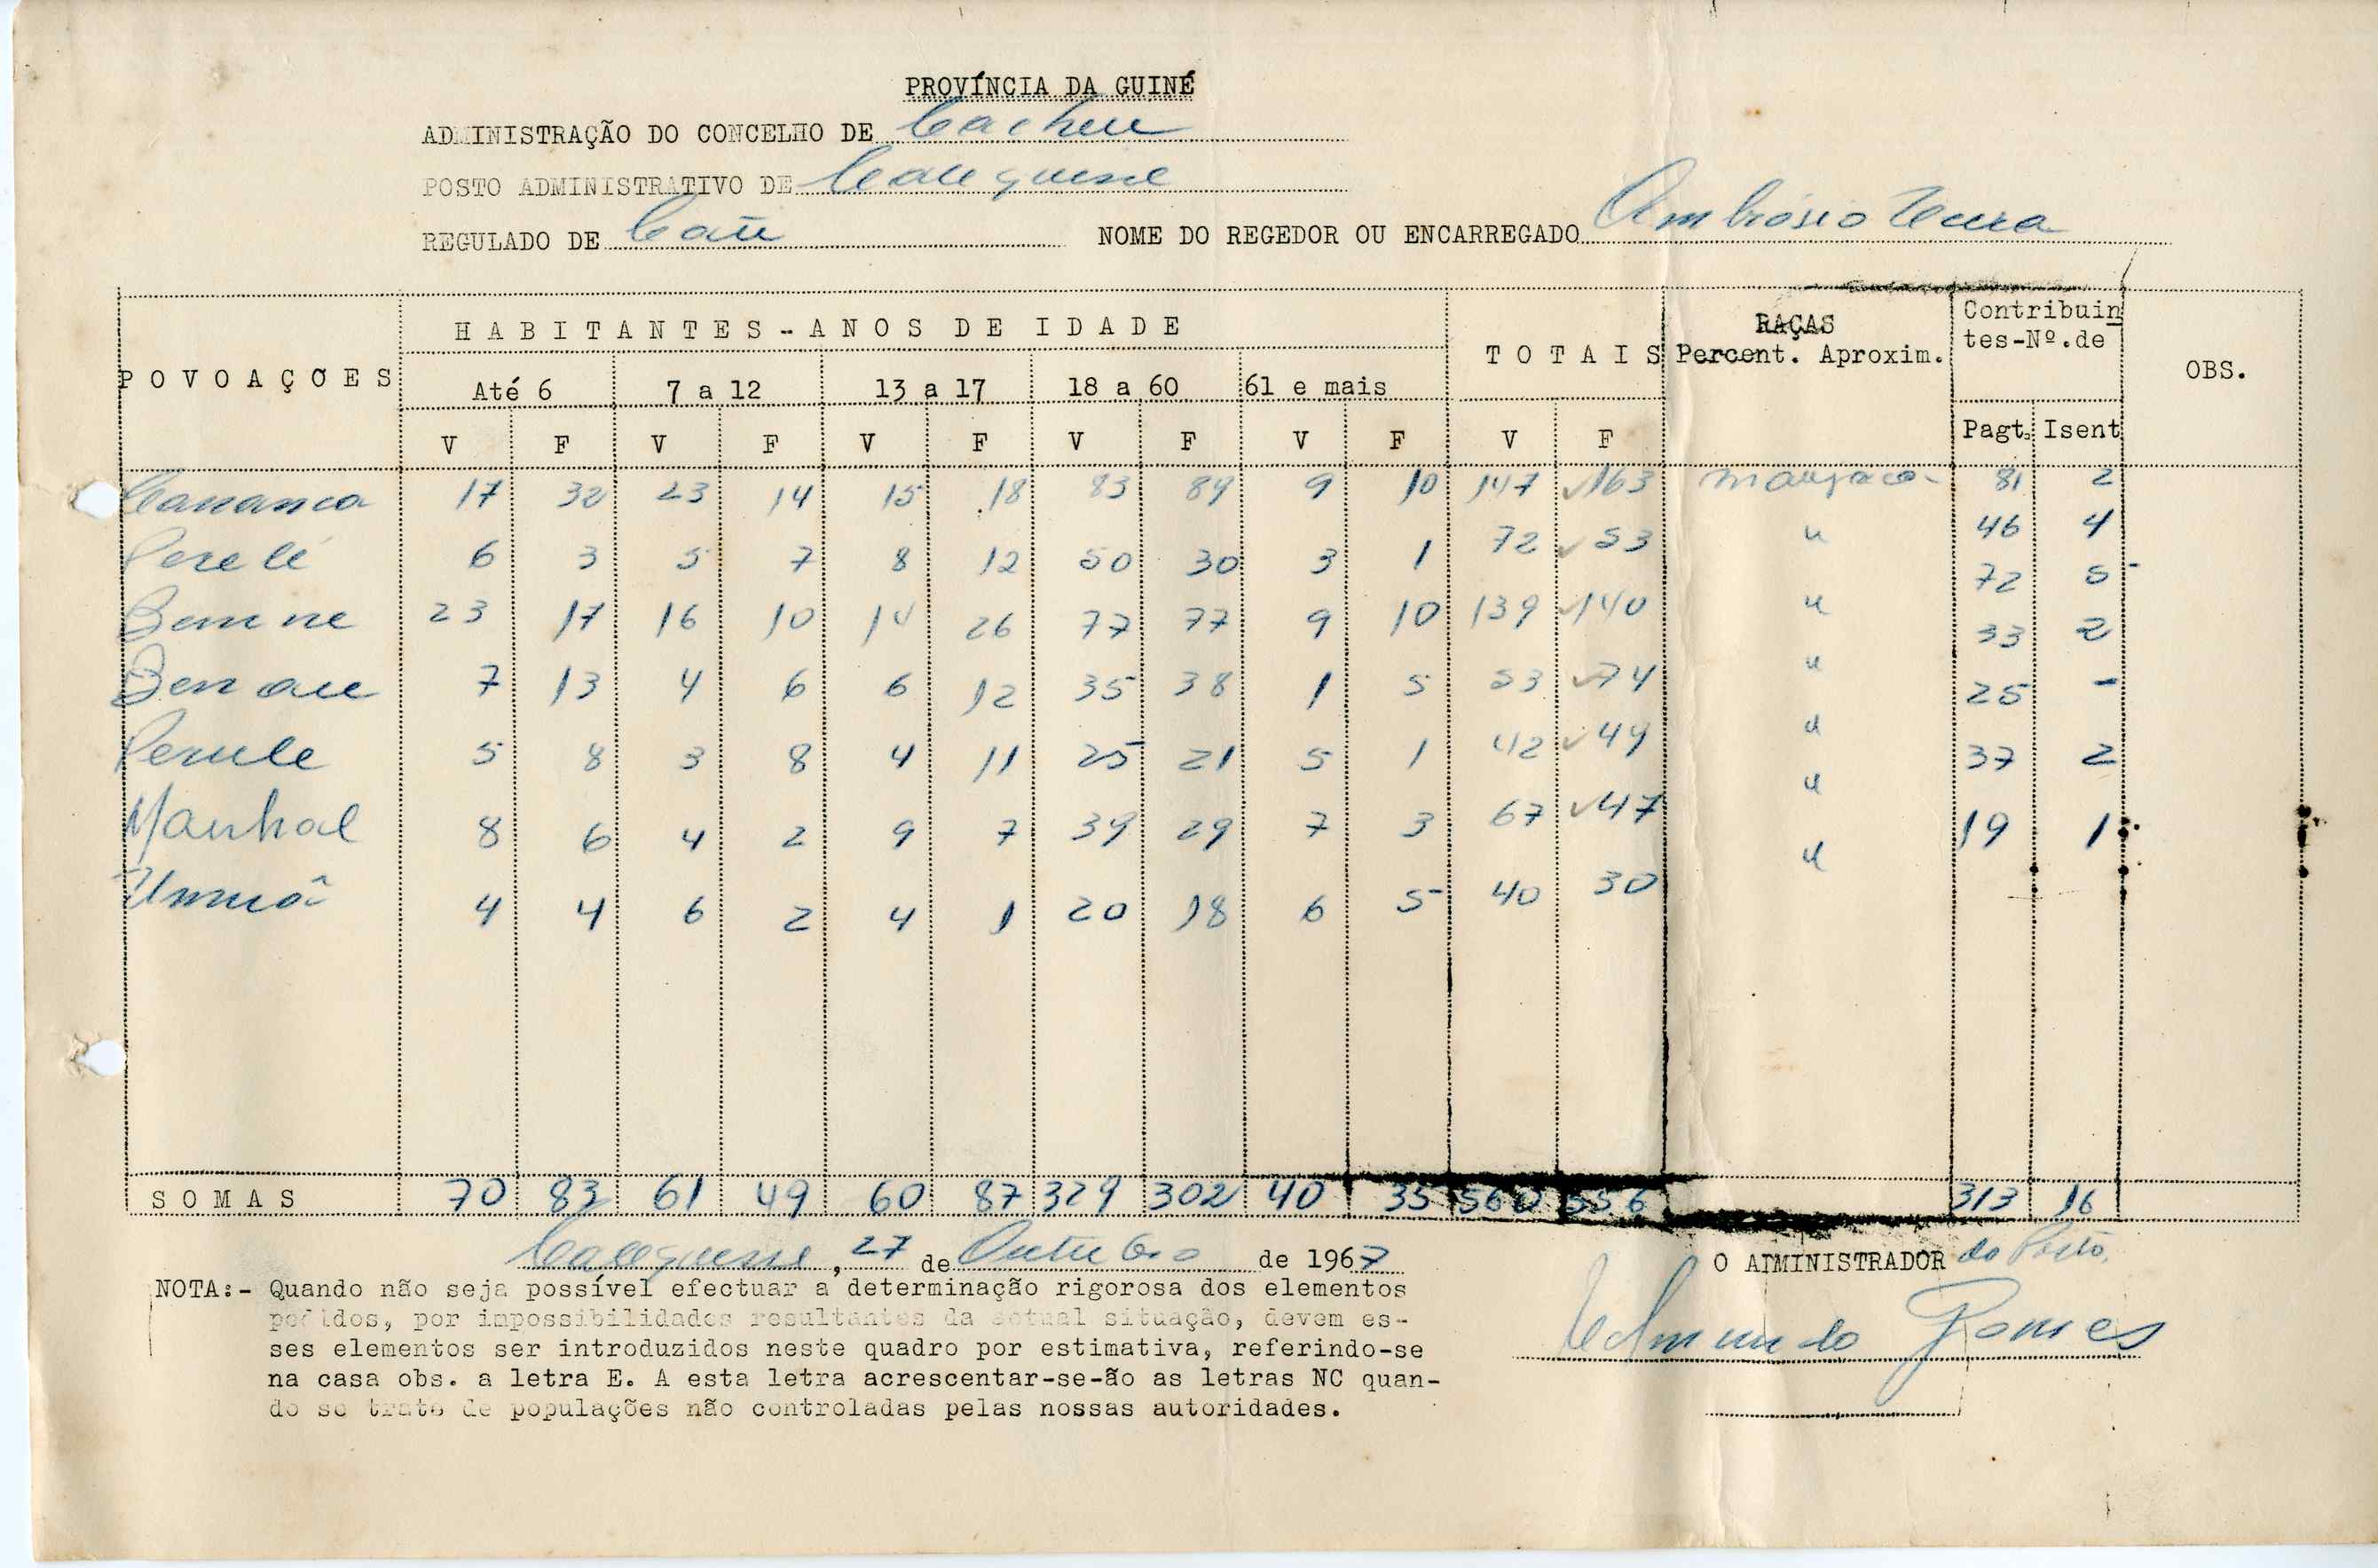 PROVÍNCIA DA GUINÉ
ADMINISTRAÇÃO DO CONCELHO DE Cacheu
POSTO ADMINISTRATIVO DE Calequisse
REGULADO DE NOME DO REGEDOR OU ENCARREGADO Ambrósio
POVOAÇÕES HABITANTES-ANOS DE IDADE TOTAIS RAÇAS Percent. Aproxim. Contribuin tes-Nº.de OBS.
Até 6 7 a 12 13 a 17 18 a 60 61 e mais
V F V F V F V F V F V F Pagt. Isent
17 32 23 14 15 18 83 89 9 10 147 163 Manjaco 81 2
6 3 5 7 8 12 50 30 3 1 72 53 " 46 4
23 17 16 10 14 26 77 77 9 10 139 140 " 72 5
7 13 4 6 6 12 35 38 1 5 53 74 " 33 2
5 8 3 8 4 11 25 21 5 1 42 49 " 25 -
8 6 4 2 9 7 39 29 7 3 67 47 " 37 2
4 4 6 2 4 1 20 18 6 5 40 30 " 19 1
SOMAS 70 83 61 49 60 87 329 302 40 35 560 556 313 16
Calequisse, 27 de Outubro de 1967
O ADMINISTRADOR do Posto,
Edmundo Gomes
NOTA:- Quando não seja possível efectuar a determinação rigorosa dos elementos
pedidos, por impossibilidades resultantes da actual situação, devem es-
ses elementos ser introduzidos neste quadro por estimativa, referindo-se
na casa obs. a letra E. A esta letra acrescentar-se-ão as letras NC quan-
do se trate de populações não controladas pelas nossas autoridades.